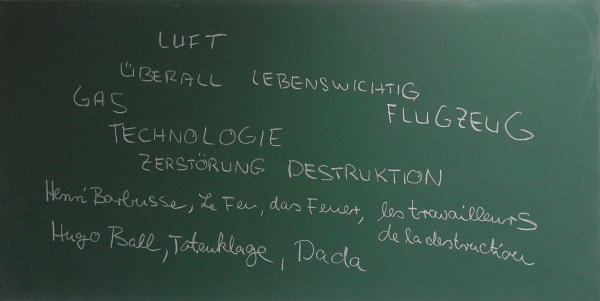 LUFT
ÜBERALL LEBENSWICHTIG
GAS FLUGZEUG
TECHNOLOGIE
ZERSTÖRUNG DESTRUKTION
Henri Barbusse, Le Feu, das Feuer, les travailleurs
de la destruction
Hugo Ball, Totenklage, Dada